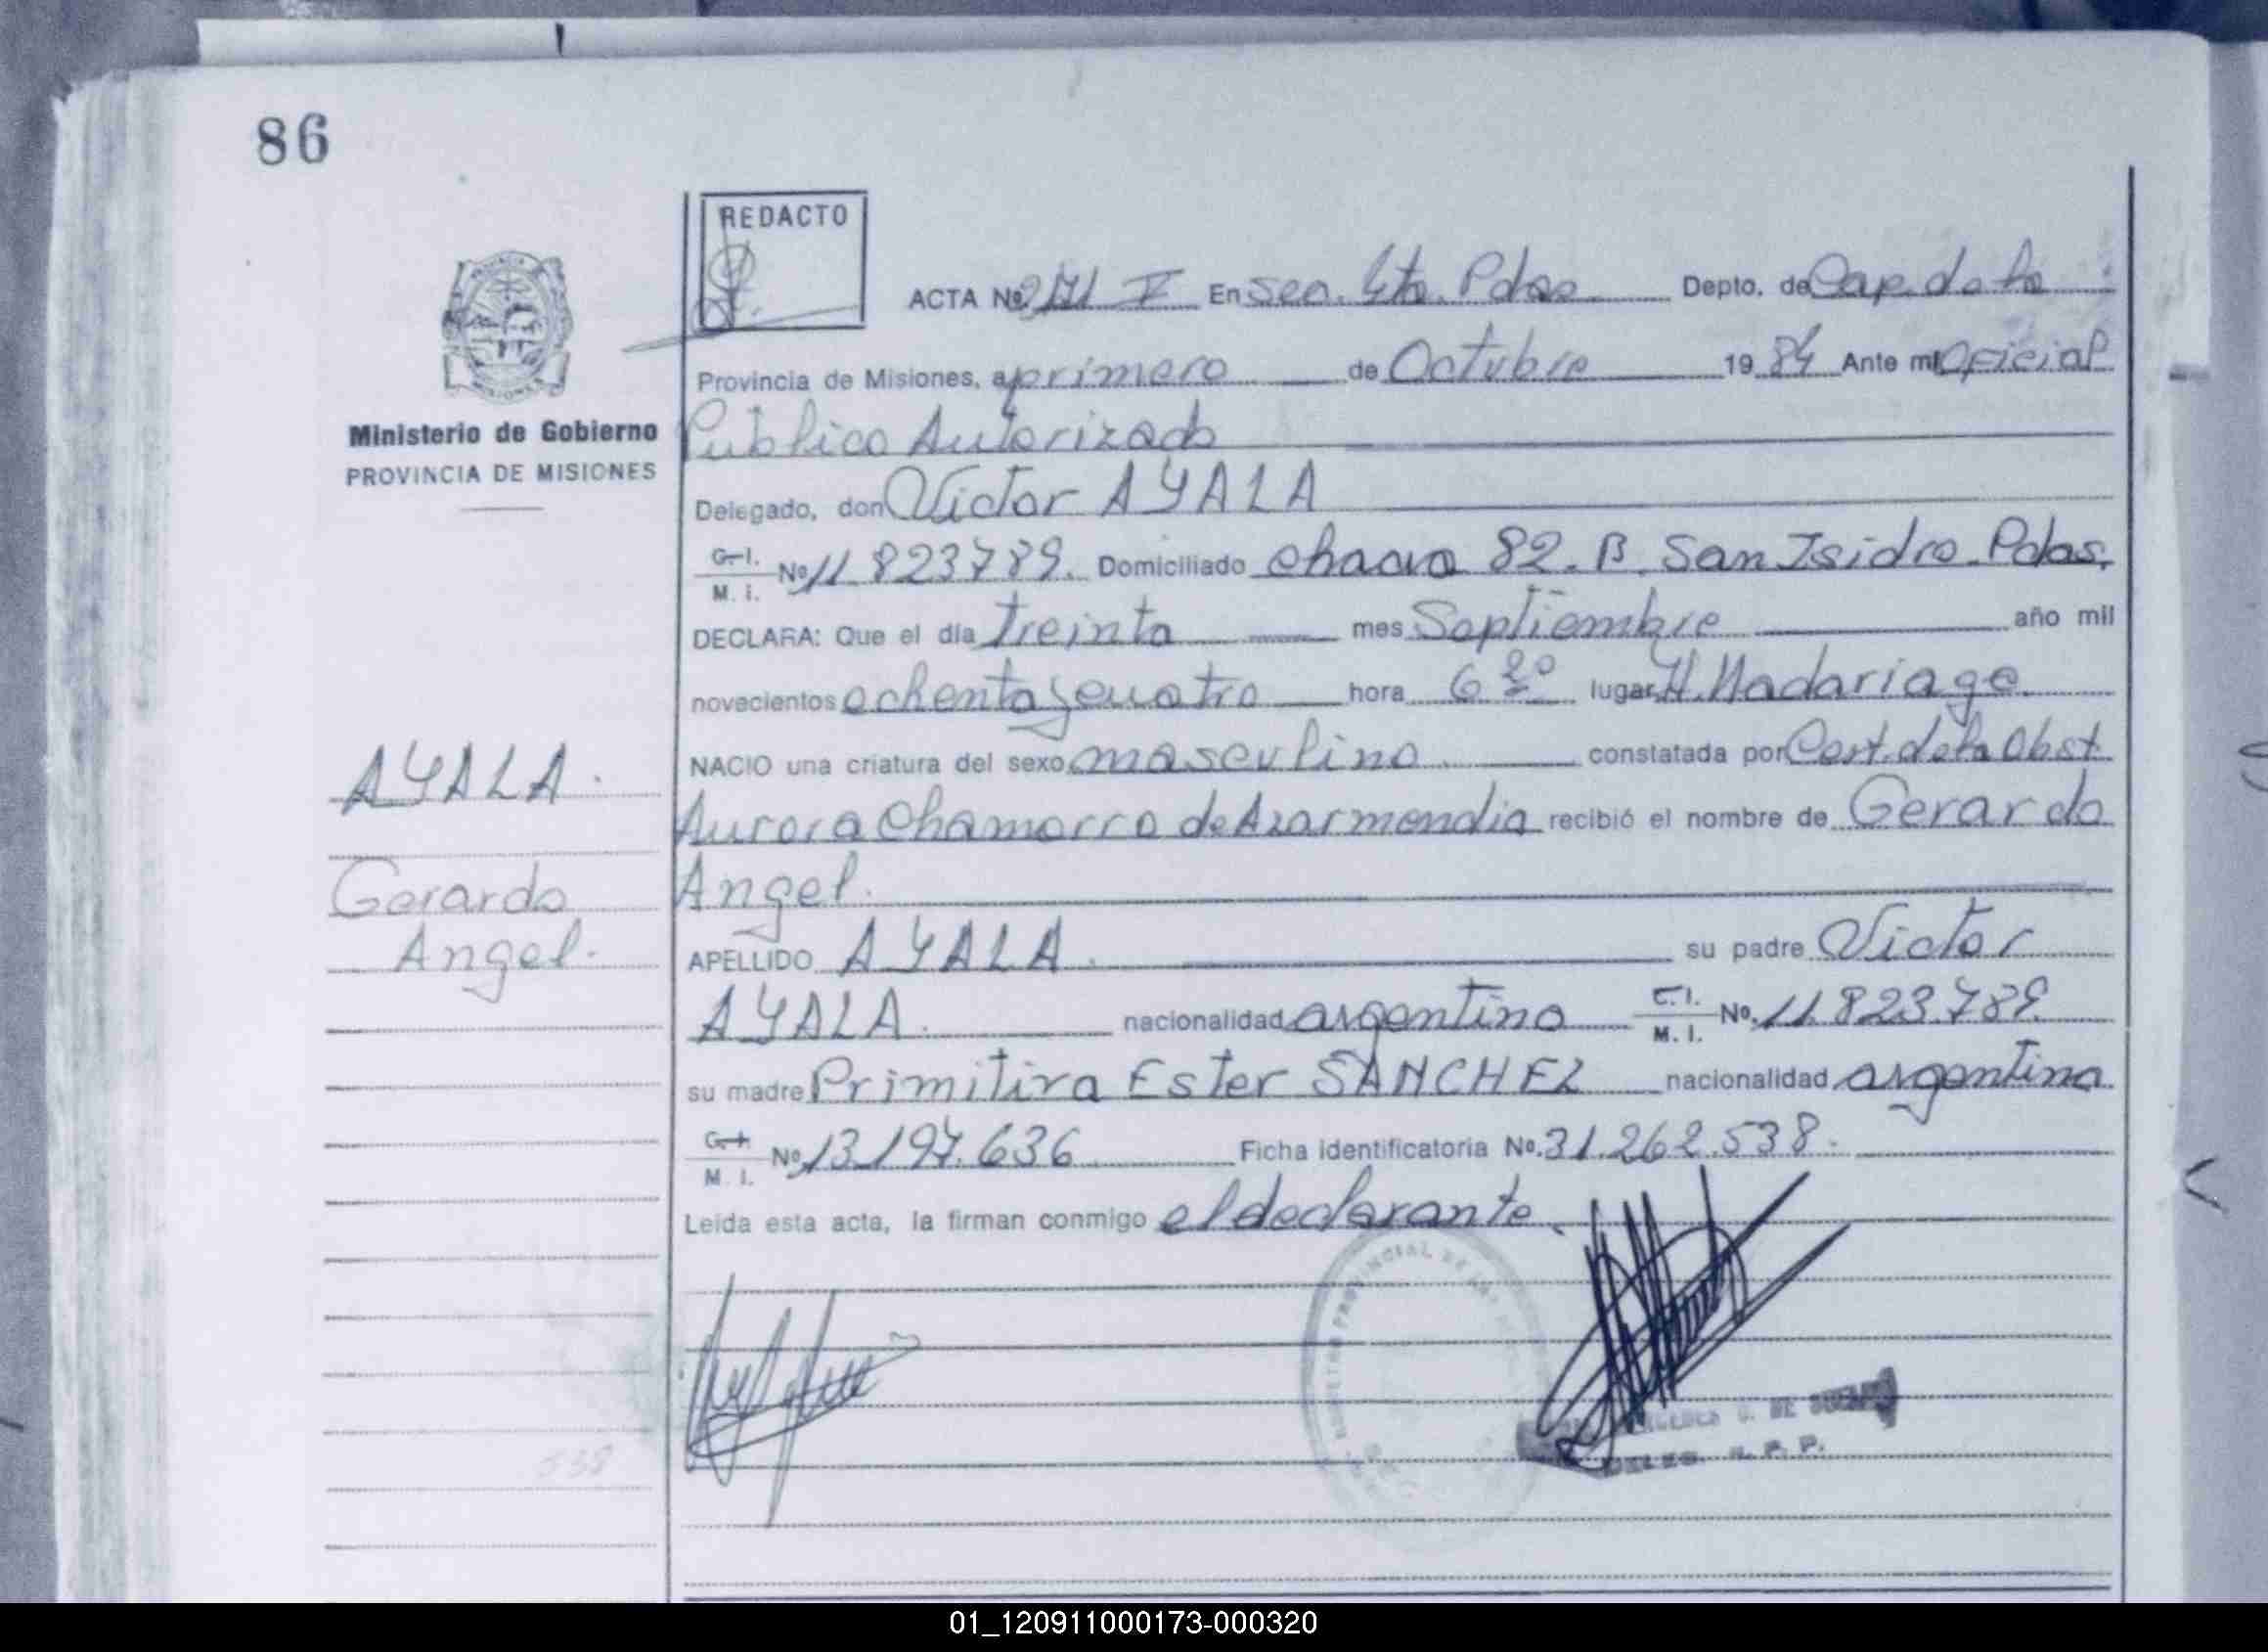 86
REDACTO
ACTA Nº 2171 V En Sec. 4ta. Pdas Depto. de Cap. de la
Provincia de Misiones, a primero de Octubre 1984 Ante mi Oficial
Ministerio de Gobierno
Publico Autorizado
PROVINCIA DE MISIONES
Delegado, don Victor AYALA
C.I. M. I. Nº 11.823789. Domiciliado Chacra 82. B. San Isidro. Pdas.
DECLARA: Que el día treinta mes Septiembre año mil
novecientos ochenta y cuatro hora 6 20 lugar H. Madariaga
NACIO una criatura del sexo masculino constatada por Cert. de la Obst.
AYALA.
Aurora Chamorro de Azarmendia recibió el nombre de Gerardo
Gerardo
Angel.
Angel.
APELLIDO AYALA. su padre Victor
AYALA. nacionalidad argentino C.I. M. I. Nº. 11.823.789.
su madre Primitiva Ester SANCHEZ nacionalidad argentina
C.I. M. I. Nº 13.197.636 Ficha identificatoria Nº. 31.262.538.
Leída esta acta, la firman conmigo el declarante.
PROVINCIAL DE
DE
DELEG. R. P. P.
538
01_120911000173-000320